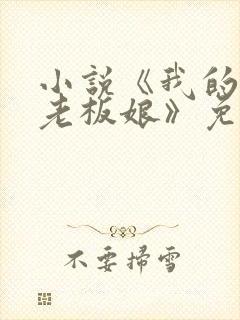 小说《我的
老板娘》免
不要掃雪